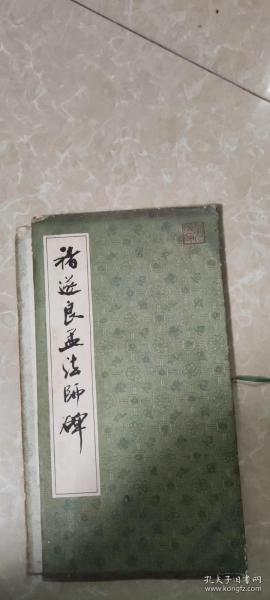 褚遂良孟法师碑
孔夫子旧书网
www.kongfz.com